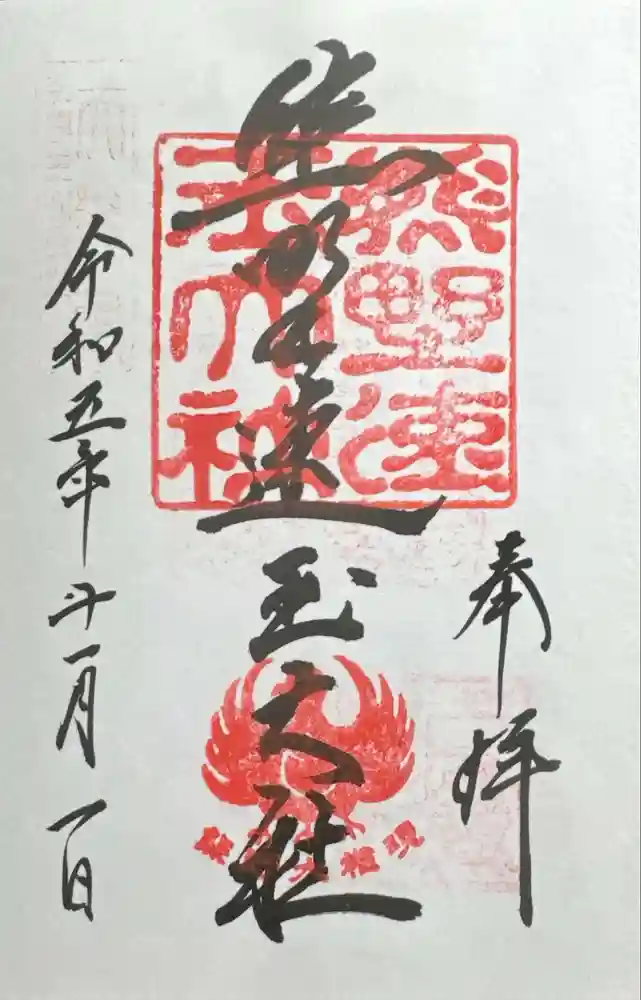 奉拝
熊野速玉大社
令和五年十一月一日
熊野速
玉大神
熊野大権現